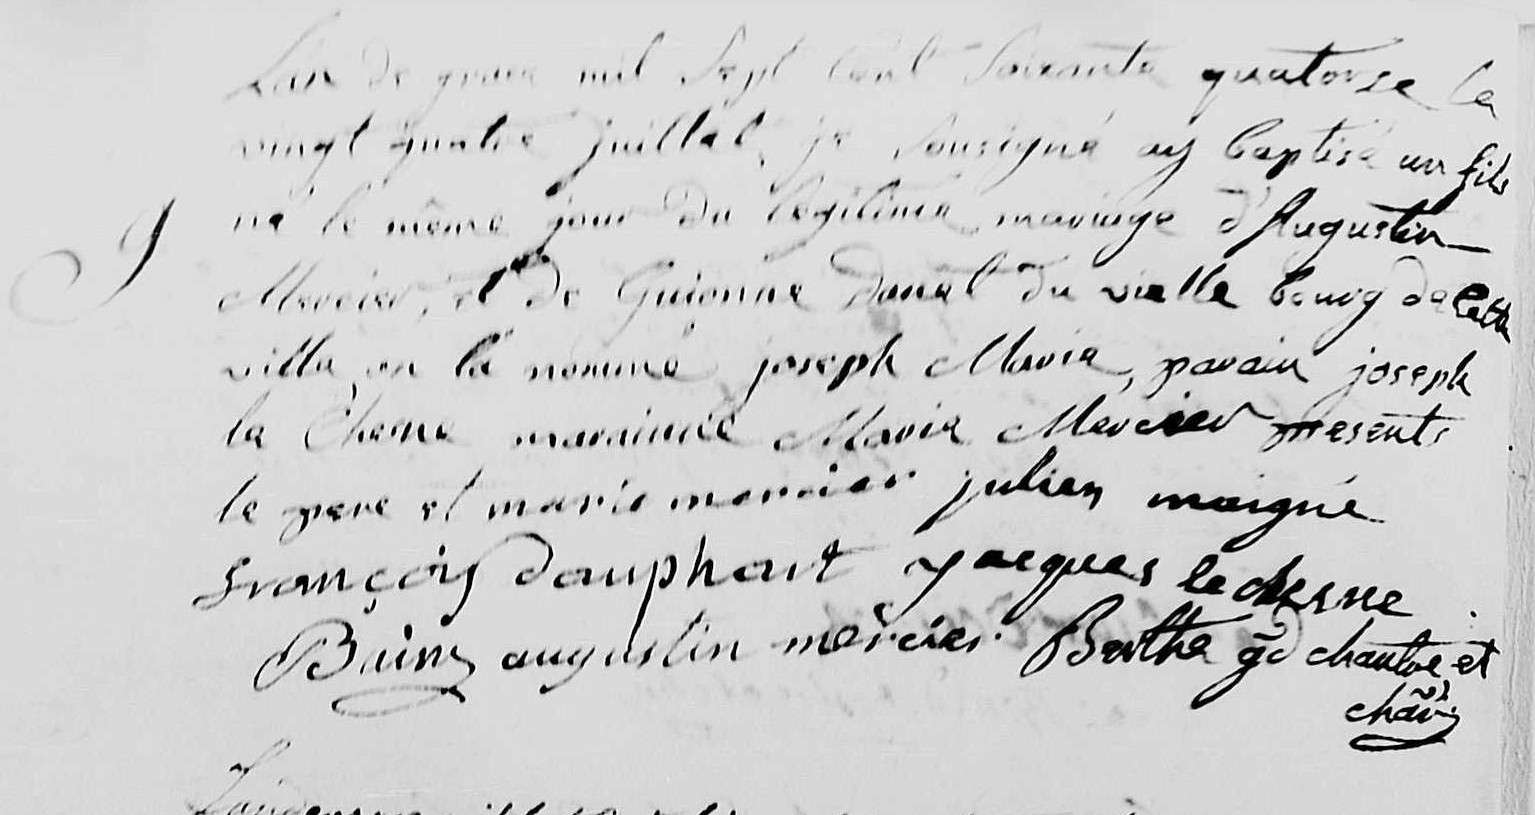 Lan de grace mil Sept Cent Soixante quatorse le
vingt quatre juillet, je Soussigné ay baptisé un fils
né le même jour du légitime mariage d'Augustin
Mercier, et de Guionne danel du vielle bourg de cette
ville, on la nommé joseph Marie, parain joseph
la Chesne marainne Marie Mercier presents
le pere et marie mercier julien maigné
françois dauphart jacques le chesne
augustin mercier. Berthe gd chantre, et
chan